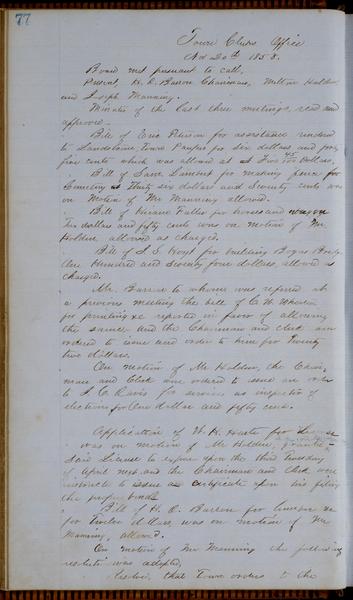 77
Town Clerks Office
Nov 20th 1858.
Board met pursuant to call,
Present, H. C. Barron Chairman, Milton Holden
and Joseph Manning.
Minutes of the last three meetings, read and
approved.
Bill of Eric Peterson for assistance rendered
to Town Pauper for six dollars and forty
five cents which was allowed at Dollars,
Bill of Saml Lambert for making fence for
Cemetery at Thirty six dollars and Seventy cents was
on Motion of Mr Manning allowed.
Bill of Hiram Fuller for horses and wagon
Ten dollars and fifty cents was on motion of Mr
Holden allowed as charged.
Bill of Hoyt for building Bridge
One Hundred and Seventy four dollars, allowed as
charged.
Mr. Barron to whom was referred at
a previous meeting the bill of C. W.
for printing &c reported in favor of allowing
the same and the Chairman and clerk were
ordered to issue and order to him for Twenty
two dollars.
On motion of Mr Holden, the Chair-
man and Clerk were ordered to issue an order
to Davis for services as inspector of
elections for One dollar and fifty cents.
Application of for License
was on motion of Mr Holden, granted
Said License to expire upon the third Tuesday
of April next and the Chairman and Clerk were
instructed to issue a certificate upon his filing
the proper bonds
Bill of H. C. Barron for &c
for Twelve dollars, was on motion of Mr
Manning, allowed.
On Motion of Mr Manning the following
was adopted,
Resolved, that Town orders to the